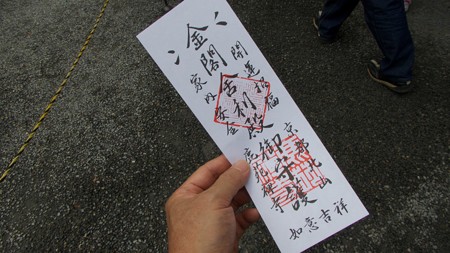 開運招福
京都北山
如意吉祥
金閣舎利殿御守護
家内安全
鹿苑禅寺